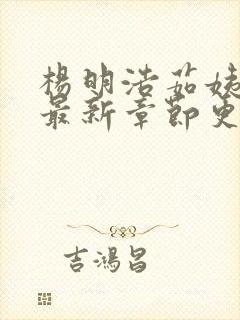 楊明浩茹姨
最新章節更
吉鴻昌